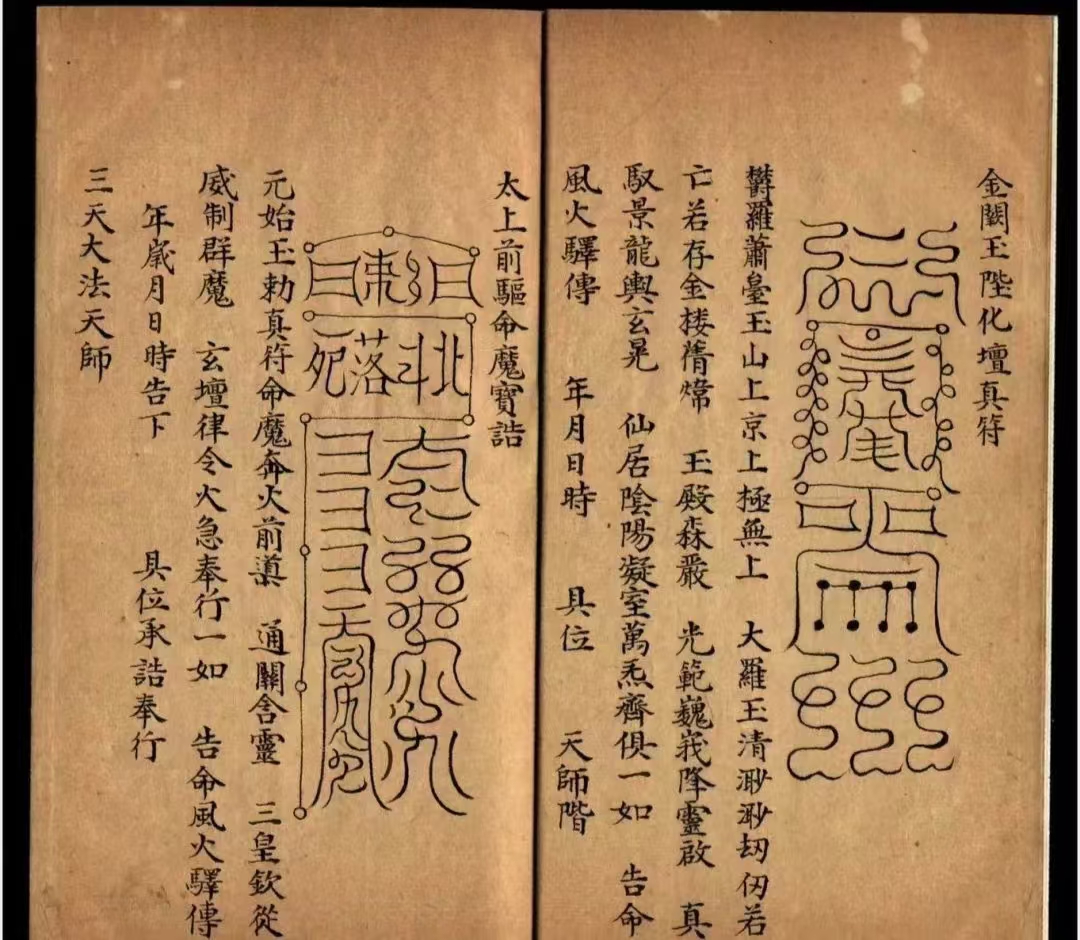 金闕玉陛化壇真符
欝羅蕭臺玉山上京上極無上 大羅玉清渺渺刼仞若
亡若存金楼蒨㷡 玉殿森嚴 光範巍峩降靈啟 真
馭景龍輿玄晃 仙居陰陽凝室萬炁齊俱一如 告命
風火驛傳 年月日時 具位 天師階
太上前驅命魔寶誥
元始玉勅真符命魔奔火前導 通關舍靈 三皇欽從
威制群魔 玄壇律令火急奉行一如 告命風火驛傳
年歲月日時告下 具位承誥奉行
三天大法天師